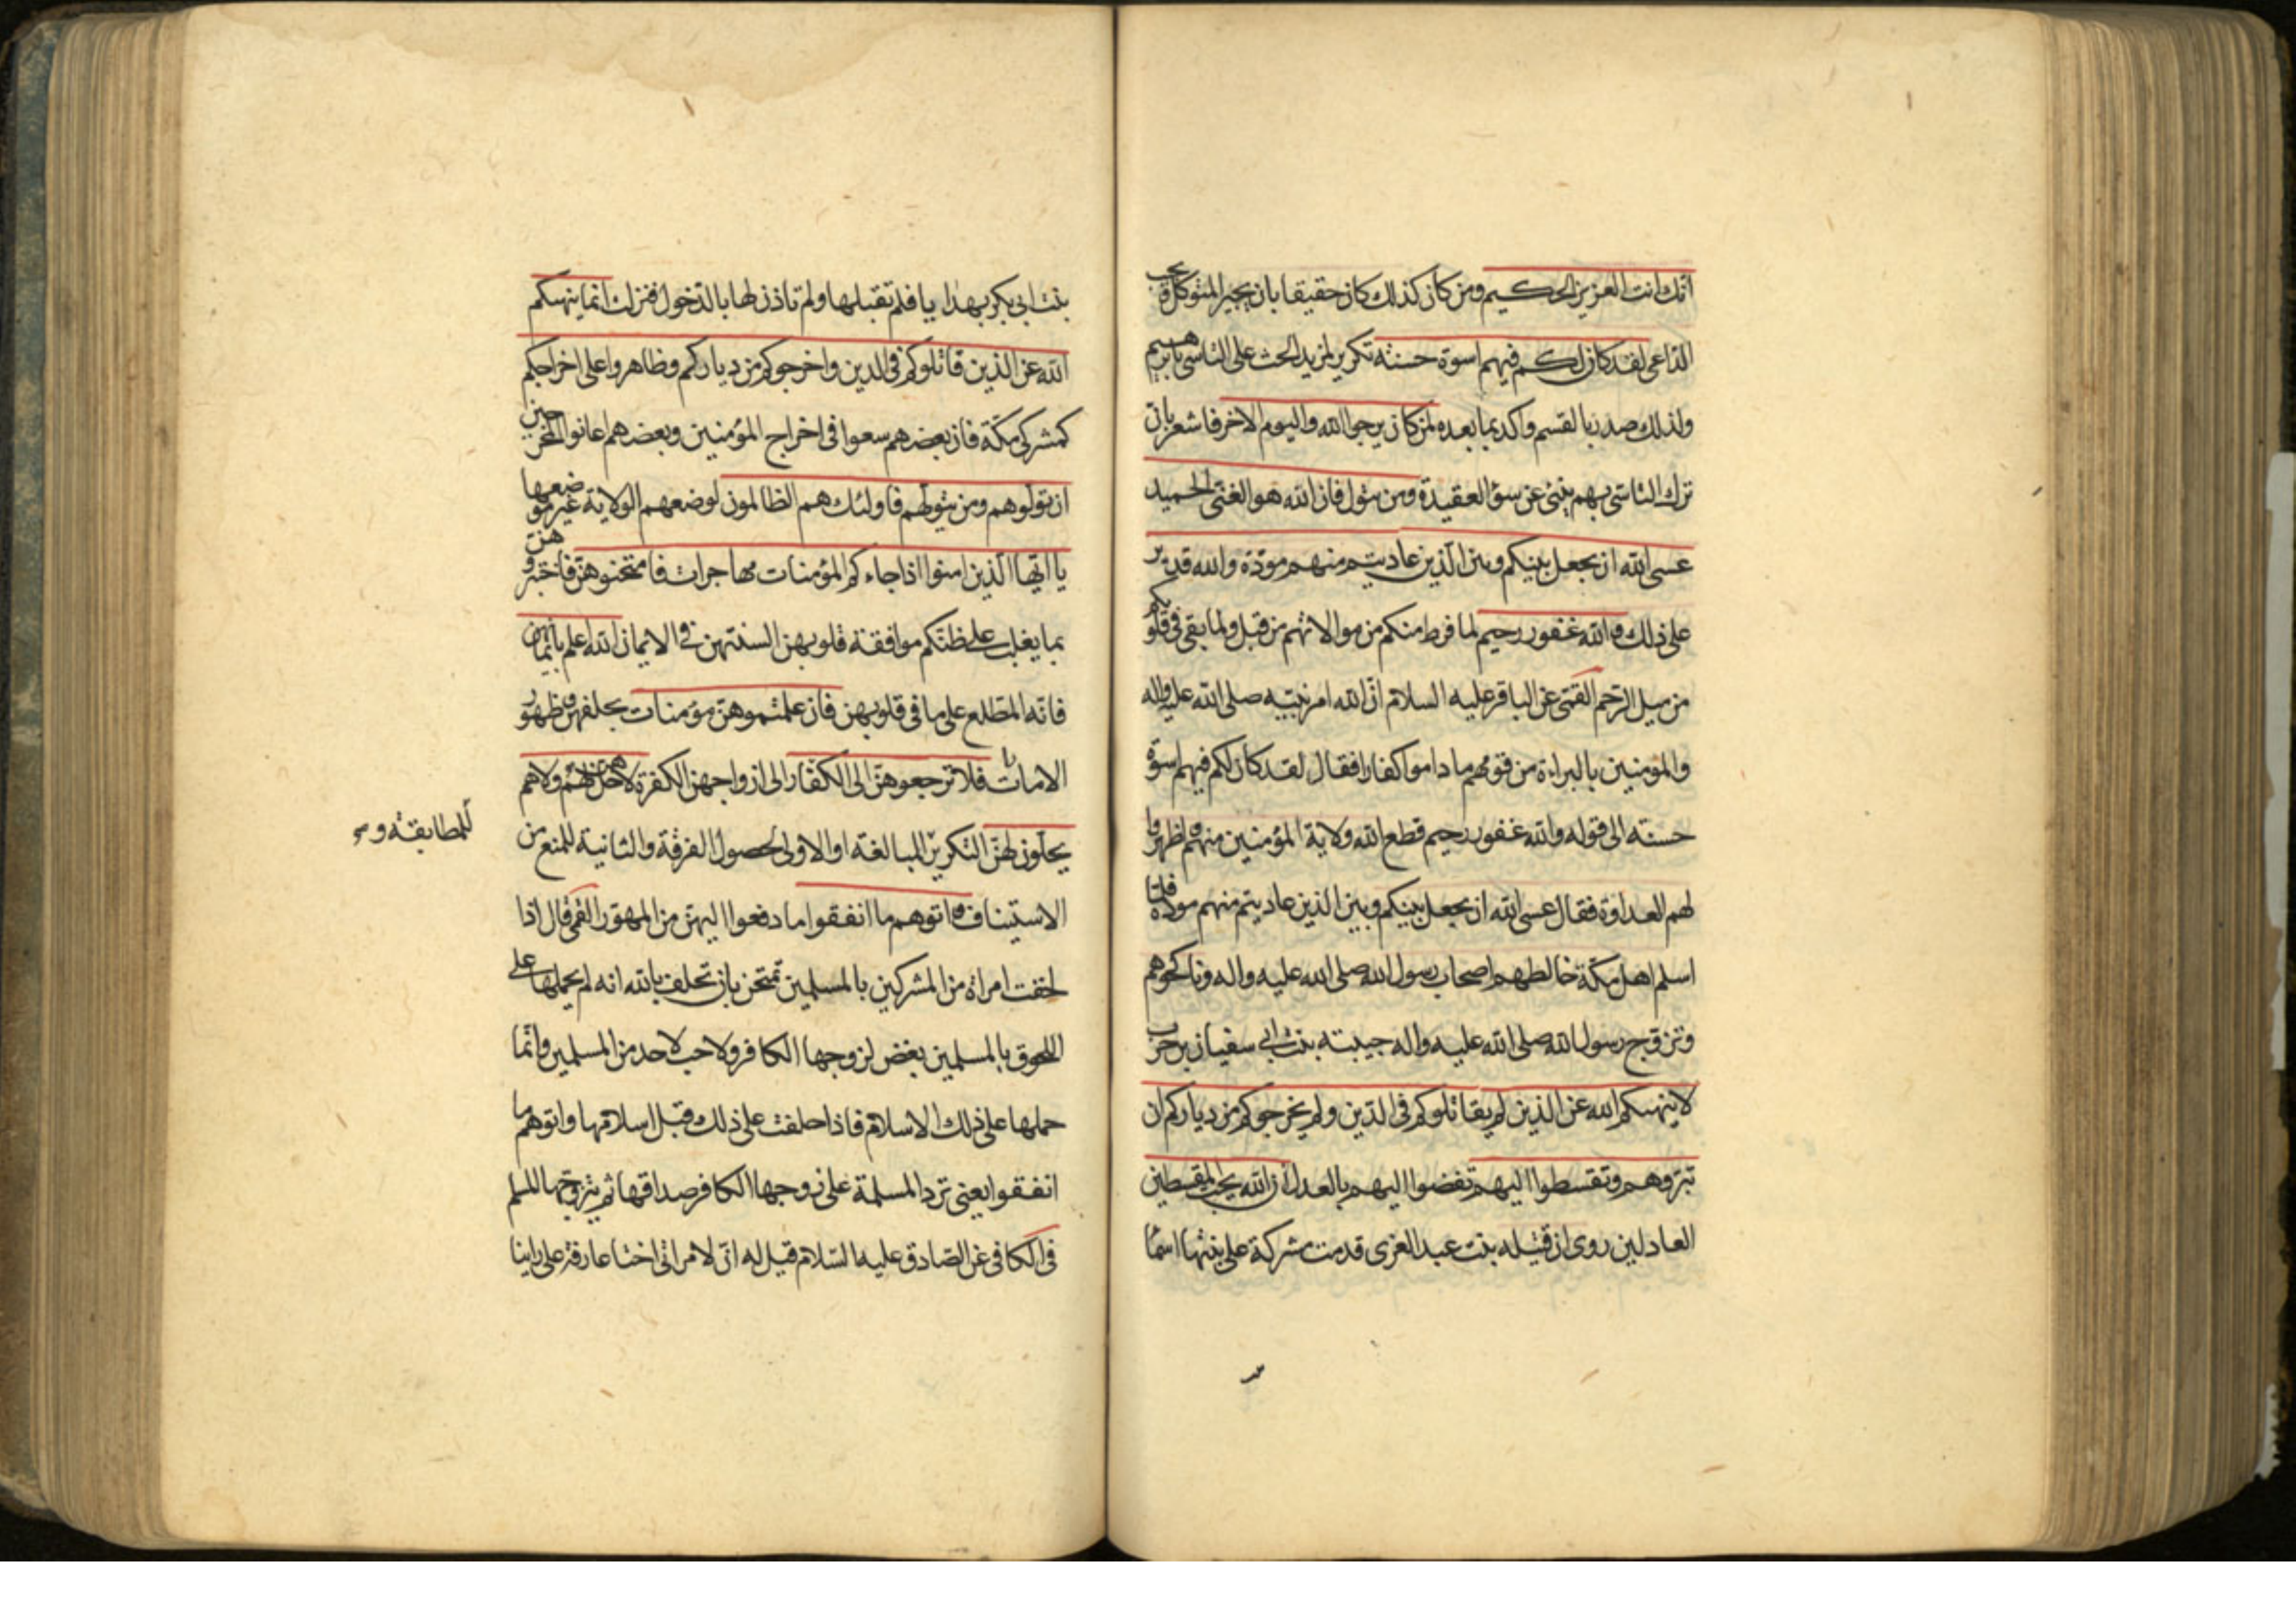 انّك انت العزيز الحكيم ومن كان كذلك كان حقيقا بان يجير المتوكل ويجيب
الدّاعى لقد كان لكم فيهم اسوة حسنة تكرير لمزيد الحث على التاسى بابرهيم
ولذلك صدر بالقسم واكد بما بعده لمن كان يرجوا الله واليوم الاخر فاشعر بان
ترك التاسّى بهم ينبئ عن سوء العقيدة ومن يتول فان الله هو الغنى الحميد
عسى الله ان يجعل بينكم وبين الذين عاديتم منهم مودّة والله قدير
على ذلك والله غفور رحيم لما فرط منكم من موالاتهم من قبل ولما بقى فى قلوبكم
من ميل الرّحم القمّى عن الباقر عليه السلام انّ الله امر نبيّه صلى الله عليه واله
والمؤمنين بالبراءة من قومهم ما داموا كفارا فقال لقد كان لكم فيهم اسوة
حسنة الى قوله والله غفور رحيم قطع الله ولاية المؤمنين منهم واظهروا
لهم العداوة فقال عسى الله ان يجعل بينكم وبين الذين عاديتم منهم مودة فلمّا
اسلم اهل مكّة خالطهم اصحاب رسول الله صلى الله عليه واله وناكحوهم
وتزوّج رسول الله صلى الله عليه واله حبيبته بنت ابى سفيان بن حرب
لا ينهيكم الله عن الذين لم يقاتلوكم فى الدّين ولم يخرجوكم من دياركم ان
تبرّوهم وتقسطوا اليهم تفضوا اليهم بالعدل ان الله يحب المقسطين
العادلين روى ان قتيله بنت عبد العزى قدمت مشركة على بنتها اسمآ
بنت ابى بكر بهدايا فلم تقبلها ولم تاذن لها بالدّخول فنزلت انما ينهيكم
الله عن الذين قاتلوكم فى الدين واخرجوكم من دياركم وظاهروا على اخراجكم
كمشركى مكّة فان بعضهم سعوا فى اخراج المؤمنين وبعضهم اعانوا المخرجين
ان تولوهم ومن يتولّهم فاولئك هم الظالمون لوضعهم الولاية غير موضعها
يا ايّها الّذين امنوا اذا جاءكم المؤمنات مهاجرات فامتحنوهنّ فاختبروهنّ
بما يغلب على ظنّكم موافقة قلوبهن السنتهن فى الايمان الله اعلم بايمانهن
فانّه المطّلع على ما فى قلوبهن فان علمتموهنّ مؤمنات بحلفهن وظهور
الامارات فلا ترجعوهنّ الى الكفّار الى ازواجهن الكفرة لا هنّ حل لهم ولا هم
يحلّون لهنّ التكرير للمبالغة او الاولى لحصول الفرقة والثانية للمنع من
للمطابقة و
الاستيناف واتوهم ما انفقوا ما دفعوا اليهنّ من المهور القمى قال اذا
لحقت امراة من المشركين بالمسلمين تمتحن بان تحلف بالله انه لم يحملها على
اللحوق بالمسلمين بغض لزوجها الكافر ولا حب لاحد من المسلمين وانّما
حملها على ذلك الاسلام فاذا حلفت على ذلك قبل اسلامها واتوهم ما
انفقوا يعنى تردّ المسلمة على زوجها الكافر صداقها ثم يتزوّجها المسلم
فى الكافى عن الصّادق عليه السّلام قيل له انّ لامراتى اختا عارفة على راينا